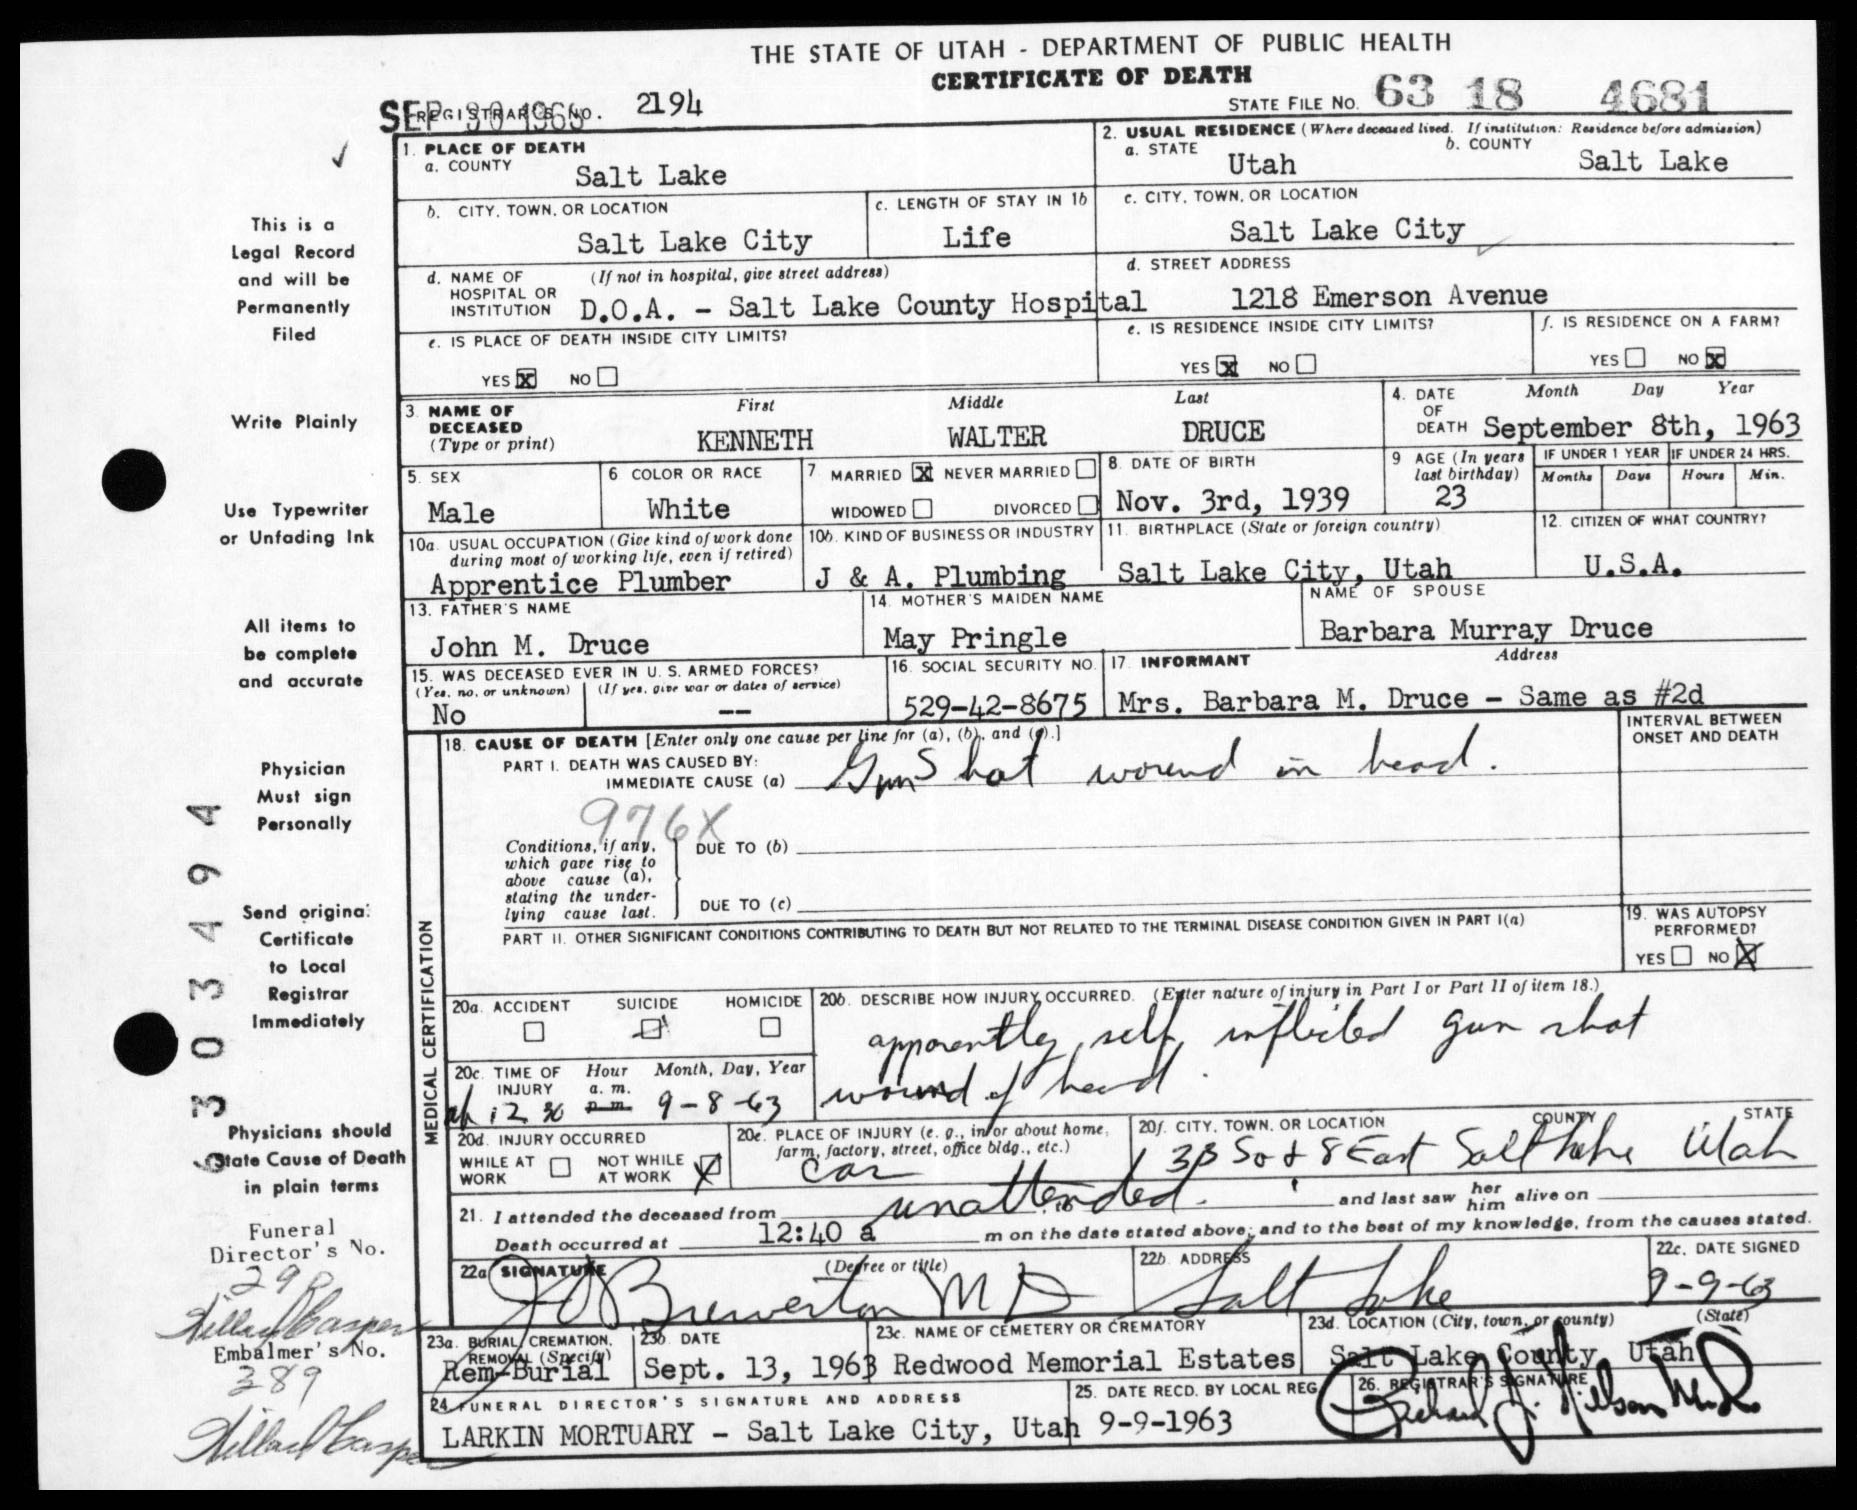 THE STATE OF UTAH - DEPARTMENT OF PUBLIC HEALTH
CERTIFICATE OF DEATH
SEP 30 1963
REGISTRAR'S NO. 2194
STATE FILE NO. 63 18 4681
1. PLACE OF DEATH
a. COUNTY
Salt Lake
2. USUAL RESIDENCE (Where deceased lived. If institution: Residence before admission)
a. STATE
Utah
b. COUNTY
Salt Lake
b. CITY, TOWN, OR LOCATION
Salt Lake City
c. LENGTH OF STAY IN 1b
Life
c. CITY, TOWN, OR LOCATION
Salt Lake City
d. NAME OF HOSPITAL OR INSTITUTION
(If not in hospital, give street address)
D.O.A. - Salt Lake County Hospital
d. STREET ADDRESS
1218 Emerson Avenue
e. IS PLACE OF DEATH INSIDE CITY LIMITS?
YES X NO
e. IS RESIDENCE INSIDE CITY LIMITS?
YES X NO
f. IS RESIDENCE ON A FARM?
YES NO X
3. NAME OF DECEASED
(Type or print)
First Middle Last
KENNETH WALTER DRUCE
4. DATE OF DEATH
Month Day Year
September 8th, 1963
5. SEX
Male
6 COLOR OR RACE
White
7. MARRIED X NEVER MARRIED
WIDOWED DIVORCED
8. DATE OF BIRTH
Nov. 3rd, 1939
9 AGE (In years last birthday)
23
IF UNDER 1 YEAR
Months Days
IF UNDER 24 HRS.
Hours Min.
10a. USUAL OCCUPATION (Give kind of work done during most of working life, even if retired)
Apprentice Plumber
10b. KIND OF BUSINESS OR INDUSTRY
J & A. Plumbing
11. BIRTHPLACE (State or foreign country)
Salt Lake City, Utah
12. CITIZEN OF WHAT COUNTRY?
U.S.A.
13. FATHER'S NAME
John M. Druce
14. MOTHER'S MAIDEN NAME
May Pringle
NAME OF SPOUSE
Barbara Murray Druce
15. WAS DECEASED EVER IN U. S. ARMED FORCES?
(Yes, no, or unknown) (If yes, give war or dates of service)
No --
16. SOCIAL SECURITY NO.
529-42-8675
17. INFORMANT Address
Mrs. Barbara M. Druce - Same as #2d
MEDICAL CERTIFICATION
18. CAUSE OF DEATH [Enter only one cause per line for (a), (b), and (c).]
INTERVAL BETWEEN ONSET AND DEATH
PART I. DEATH WAS CAUSED BY:
IMMEDIATE CAUSE (a) Gun Shot wound in head.
976X
Conditions, if any, which gave rise to above cause (a), stating the underlying cause last.
DUE TO (b)
DUE TO (c)
PART II. OTHER SIGNIFICANT CONDITIONS CONTRIBUTING TO DEATH BUT NOT RELATED TO THE TERMINAL DISEASE CONDITION GIVEN IN PART I(a)
19. WAS AUTOPSY PERFORMED?
YES NO X
20a. ACCIDENT SUICIDE HOMICIDE
20b. DESCRIBE HOW INJURY OCCURRED. (Enter nature of injury in Part I or Part II of item 18.)
apparently self inflicted gun shot
wound of head.
20c. TIME OF INJURY
Hour Month, Day, Year
a. m.
p. m.
12 30 9-8-63
20d. INJURY OCCURRED
WHILE AT WORK NOT WHILE AT WORK X
20e. PLACE OF INJURY (e. g., in or about home, farm, factory, street, office bldg., etc.)
car
20f. CITY, TOWN, OR LOCATION COUNTY STATE
33 So & 8 East Salt Lake Utah
21. I attended the deceased from unattended. and last saw her him alive on
Death occurred at 12:40 a m on the date stated above; and to the best of my knowledge, from the causes stated.
22a. SIGNATURE (Degree or title)
Brewerton MD
22b. ADDRESS
Salt Lake
22c. DATE SIGNED
9-9-63
23a. BURIAL, CREMATION, REMOVAL (Specify)
Rem-Burial
23b. DATE
Sept. 13, 1963
23c. NAME OF CEMETERY OR CREMATORY
Redwood Memorial Estates
23d. LOCATION (City, town, or county) (State)
Salt Lake County Utah
24. FUNERAL DIRECTOR'S SIGNATURE AND ADDRESS
LARKIN MORTUARY - Salt Lake City, Utah
25. DATE RECD. BY LOCAL REG.
9-9-1963
26. REGISTRAR'S SIGNATURE
This is a
Legal Record
and will be
Permanently
Filed
Write Plainly
Use Typewriter
or Unfading Ink
All items to
be complete
and accurate
Physician
Must sign
Personally
Send original
Certificate
to Local
Registrar
Immediately
Physicians should
State Cause of Death
in plain terms
Funeral
Director's No.
Embalmer's No.
389
6303494